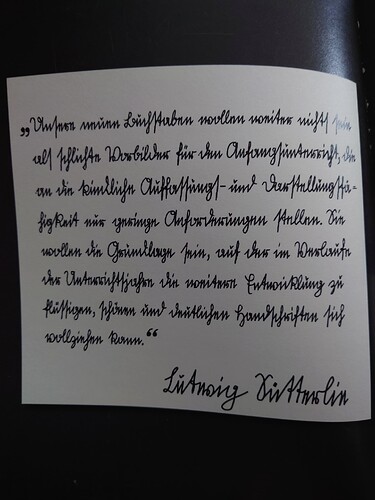 „Unsere neuen Buchstaben wollen weiter nichts sein
als schlichte Vorbilder für den Anfangsunterricht, die
an die kindliche Auffassungs- und Darstellungsfä-
higkeit nur geringe Anforderungen stellen. Sie
wollen die Grundlage sein, auf der im Verlaufe
der Unterrichtsjahre die weitere Entwicklung zu
flüssigen, schönen und deutlichen Handschriften sich
vollziehen kann.“
Ludwig Sütterlin